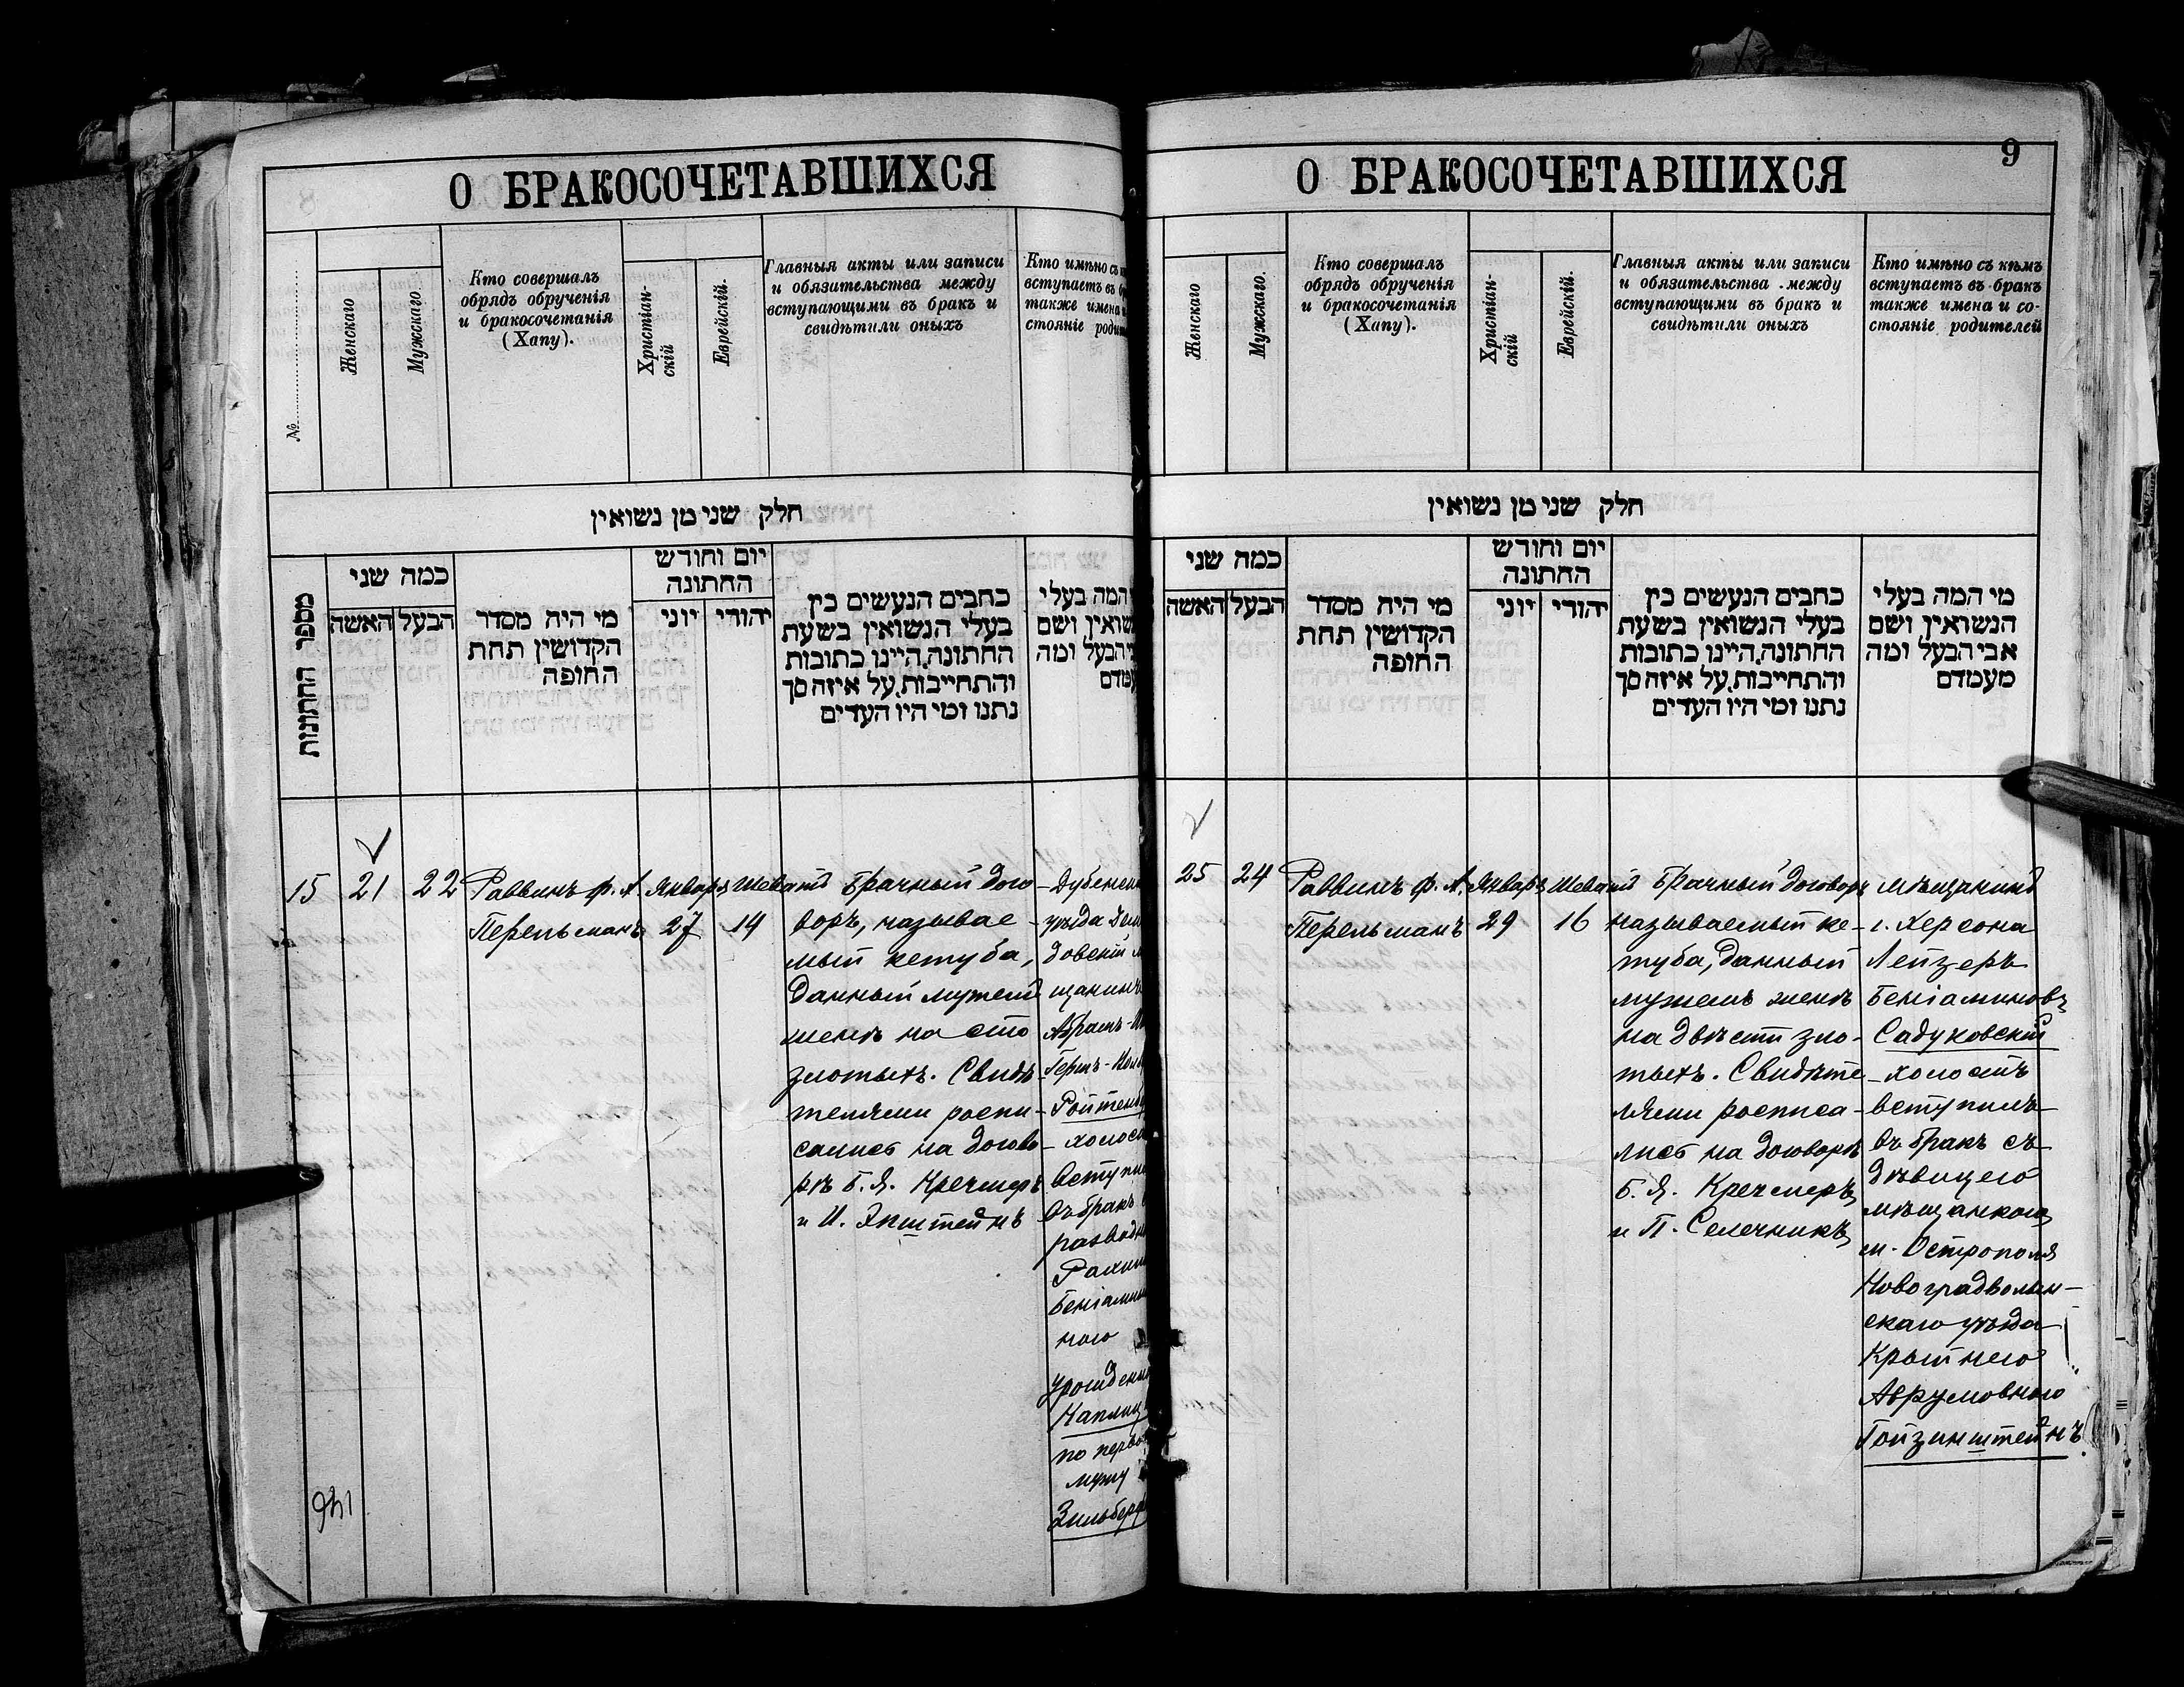 О БРАКОСОЧЕТАВШИХСЯ
№
Женскаго
Мужскаго
Кто совершалъ
обрядъ обрученія
и бракосочетанія
(Хапу).
Христіан-
скій
Еврейскій.
Главныя акты или записи
и обязательства между
вступающими въ бракъ и
свидѣтили оныхъ
Кто имѣно съ
вступаетъ въ
также имена
стояніе
חלק שני מן נשואין
מספר החתונות
כמה שני
האשה
הבעל
מי היה מסדר
הקדושין תחת
החופה
יום וחודש
החתונה
יוני
יהודי
כתבים הנעשים בין
בעלי הנשואין בשעת
החתונה, היינו כתובות
והתחייבות, על איזה סך
נתנו ומי היו העדים
המה בעלי
ושם
הבעל ומה
15
21
22
Раввинъ Ф. А.
Перельманъ
Января
27
Шеватъ
14
Брачный дого-
воръ, называе-
мый кетуба,
данный мужемъ
женѣ на сто
злотыхъ. Свидѣ-
телями роспи-
сались на догово-
рѣ Б. Я. Кречмеръ
и И. Эпштейнъ
уѣзда
довскій
щанинъ
Абрамъ-
Гершъ-
вступи
въ бракъ
Беніамин
ною
урожденн
по перво
мужу
Зильбер
146
О БРАКОСОЧЕТАВШИХСЯ
9
Женскаго
Мужскаго.
Кто совершалъ
обрядъ обрученія
и бракосочетанія
(Хапу).
Христіан-
скій
Еврейскій.
Главныя акты или записи
и обязательства между
вступающими въ бракъ и
свидѣтили оныхъ
Кто имѣно съ кѣмъ
вступаетъ въ бракъ
также имена и со-
стояніе родителей
חלק שני מן נשואין
כמה שני
האשה
הבעל
מי היה מסדר
הקדושין תחת
החופה
יום וחודש
החתונה
יוני
יהודי
כתבים הנעשים בין
בעלי הנשואין בשעת
החתונה, היינו כתובות
והתחייבות, על איזה סך
נתנו ומי היו העדים
מי המה בעלי
הנשואין ושם
אבי הבעל ומה
מעמדם
25
24
Раввинъ Ф. А.
Перельманъ
Января
29
Шеватъ
16
Брачный договоръ
называемый ке-
туба, данный
мужемъ женѣ
на двѣсти зло-
тыхъ. Свидѣте-
лями росписа-
лись на договорѣ
Б. Я. Кречмеръ
и П. Селечникъ
мѣщанинъ
г. Херсона
Лейзеръ
Беніаминовъ
Садуковскій
холостъ
вступилъ
въ бракъ съ
дѣвицею
мѣщанкою
м. Острополя
Новоградволын-
скаго уѣзда
Крейнею
Аврумовною
Гойзинштейнъ.